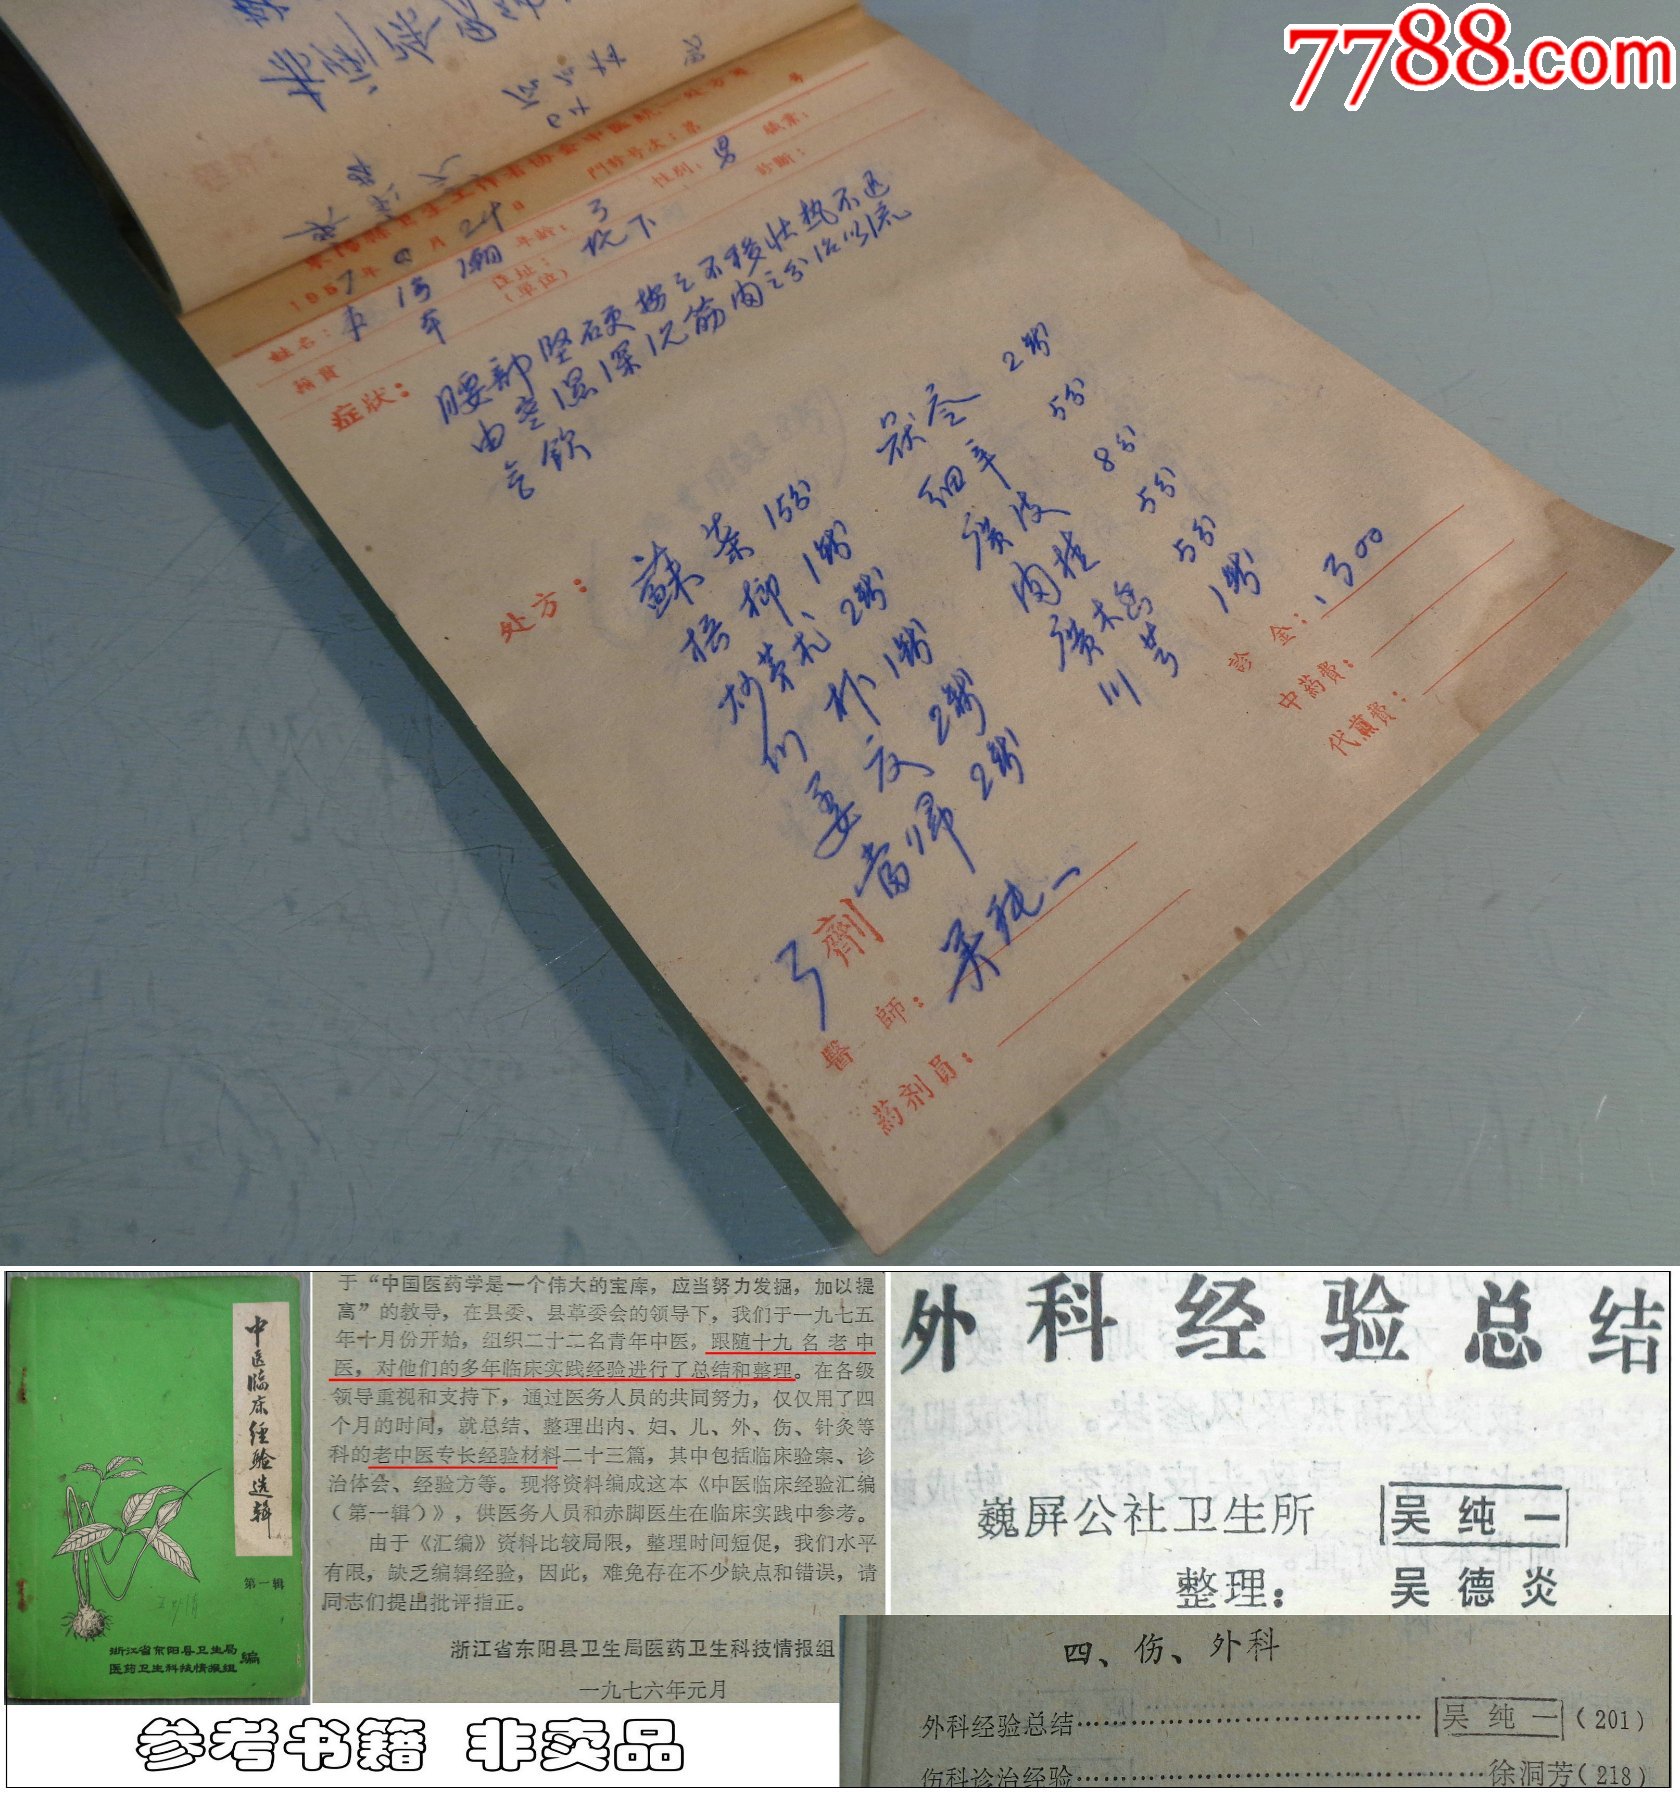 7788.com
东阳县卫生工作者协会中医统一处方笺
1957年 月24日 門診号次:第 号
姓名: 年龄:3 性别:男 職業:
籍貫 住址:(單位)坑下 診斷:
症狀:
腰部坚硬按之不移壮热不退
由寒湿深沉筋肉之分治以流
气饮
处方:
蘇葉 15分
梹榔 1錢
炒茅术 2錢
川朴 1錢
姜夏 2錢
当归 2錢
茯苓 2錢
细辛 5分
廣皮 8分
肉桂 5分
廣木香 5分
川芎 1錢
3劑
診金:
中葯費:
代煎費:
醫師:吴纯一
葯剂員:
中医临床经验选辑
第一辑
浙江省东阳县卫生局
医药卫生科技情报组 编
于“中国医药学是一个伟大的宝库，应当努力发掘，加以提
高”的教导，在县委、县革委会的领导下，我们于一九七五
年十月份开始，组织二十二名青年中医，跟随十九名老中
医，对他们的多年临床实践经验进行了总结和整理。在各级
领导重视和支持下，通过医务人员的共同努力，仅仅用了四
个月的时间，就总结、整理出内、妇、儿、外、伤、针灸等
科的老中医专长经验材料二十三篇，其中包括临床验案、诊
治体会、经验方等。现将资料编成这本《中医临床经验汇编
（第一辑）》，供医务人员和赤脚医生在临床实践中参考。
由于《汇编》资料比较局限，整理时间短促，我们水平
有限，缺乏编辑经验，因此，难免存在不少缺点和错误，请
同志们提出批评指正。
浙江省东阳县卫生局医药卫生科技情报组
一九七六年元月
外科经验总结
巍屏公社卫生所 吴纯一
整理： 吴德炎
四、伤、外科
外科经验总结……………………………吴纯一（201）
伤科诊治经验……………………………徐洞芳（218）
参考书籍 非卖品